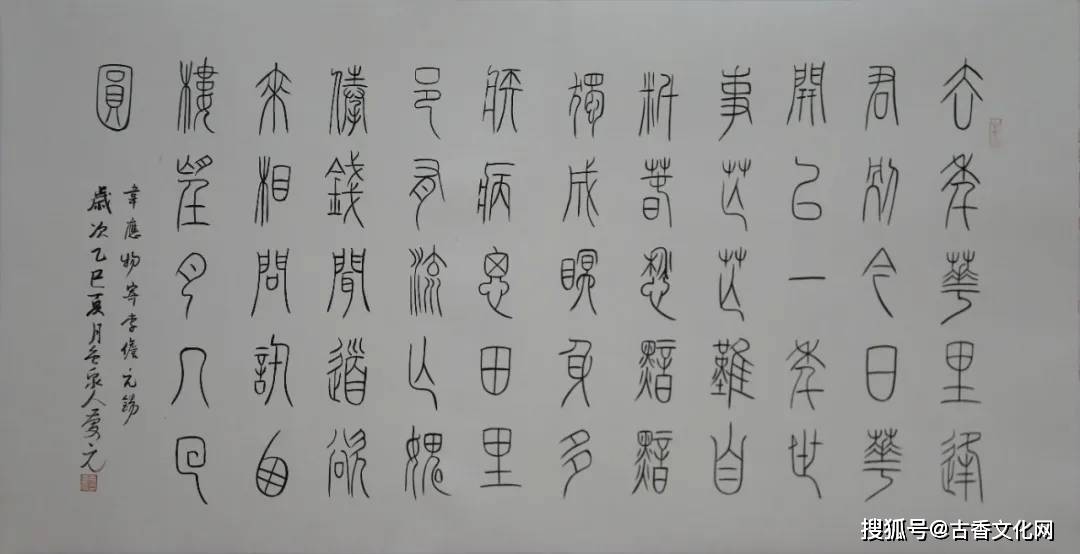 去年華里逢
君別今日華
開已一年世
事芒芒難自
料春愁黯黯
獨成眠身多
疾病思田里
邑有流亡愧
俸錢聞道欲
來相問訊西
樓望月几回
圓
韋應物寄李儋元錫
歲次乙巳夏月泉人元
搜狐号@古香文化网